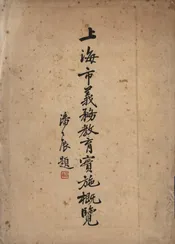 上海市義務教育實施概覽
潘公展題